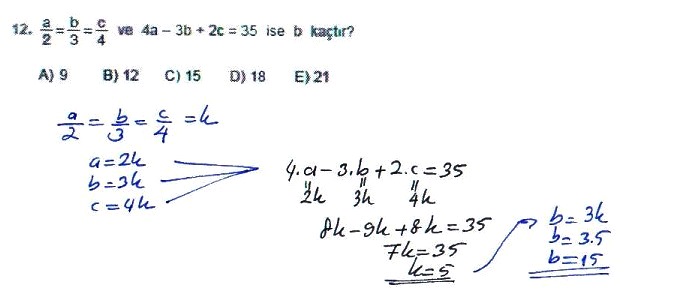 12. a/2 = b/3 = c/4 ve 4a – 3b + 2c = 35 ise b kaçtır?
A) 9 B) 12 C) 15 D) 18 E) 21
a/2 = b/3 = c/4 = k
a = 2k
b = 3k
c = 4k
4.a – 3.b + 2.c = 35
2k 3k 4k
8k – 9k + 8k = 35
7k = 35
k = 5
b = 3k
b = 3.5
b = 15